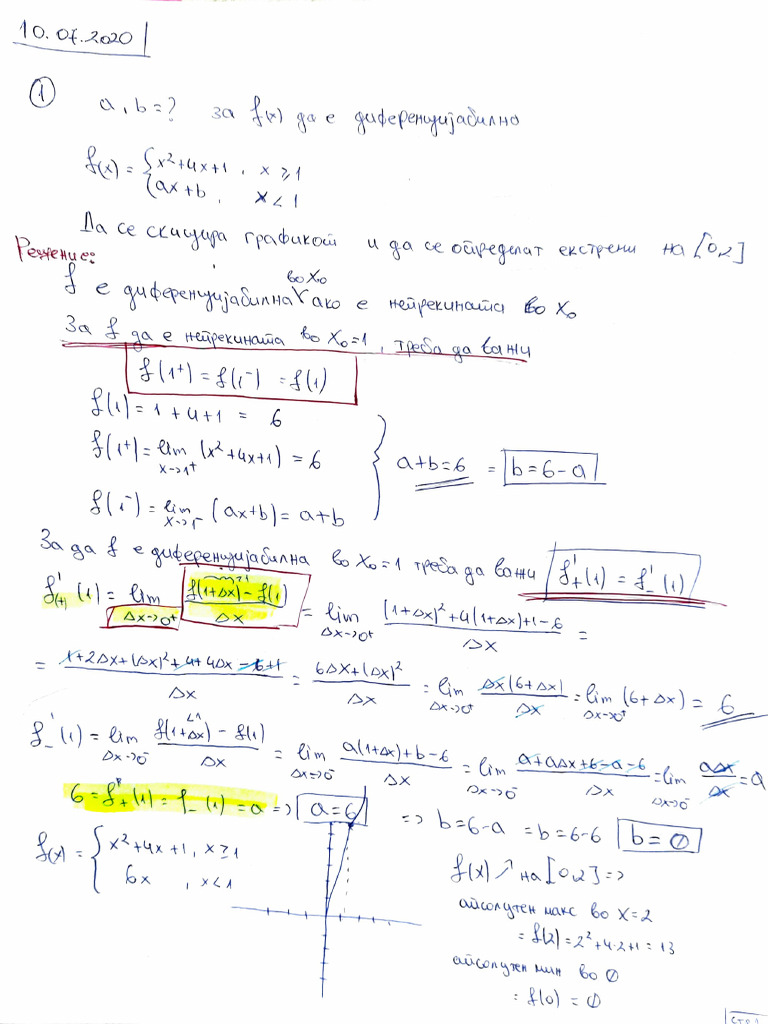 10.07.2020
① a, b = ? за f(x) да е диференцијабилно
f(x) = { x²+4x+1, x ≥ 1
ax+b, x < 1
Да се скицира графикот и да се определат екстреми на [0,2]
Решение:
f е диференцијабилна во x₀ ако е непрекината во x₀
За f да е непрекината во x₀=1, треба да важи
f(1⁺) = f(1⁻) = f(1)
f(1) = 1+4+1 = 6
f(1⁺) = lim x→1⁺ (x²+4x+1) = 6
f(1⁻) = lim x→1⁻ (ax+b) = a+b
a+b=6 = b=6-a
За да f е диференцијабилна во x₀=1 треба да важи f'₊(1) = f'₋(1)
f'₍₊₎(1) = lim Δx→0⁺ (f(1+Δx) - f(1))/Δx = lim Δx→0⁺ ((1+Δx)²+4(1+Δx)+1-6)/Δx =
= (1+2Δx+(Δx)²+4+4Δx-6+1)/Δx = (6Δx+(Δx)²)/Δx = lim Δx→0⁺ Δx(6+Δx)/Δx = lim Δx→0⁺ (6+Δx) = 6
f'₋(1) = lim Δx→0⁻ (f(1+Δx) - f(1))/Δx = lim Δx→0⁻ (a(1+Δx)+b-6)/Δx = lim Δx→0⁻ (a+aΔx+6-a-6)/Δx = lim Δx→0⁻ aΔx/Δx = a
6 = f'₊(1) = f'₋(1) = a => a=6 => b=6-a = b=6-6 b=0
f(x) = { x²+4x+1, x ≥ 1
6x, x < 1
f(x) ↗ на [0,2] =>
апсолутен макс во x=2
= f(2) = 2²+4·2+1 = 13
апсолутен мин во 0
= f(0) = 0